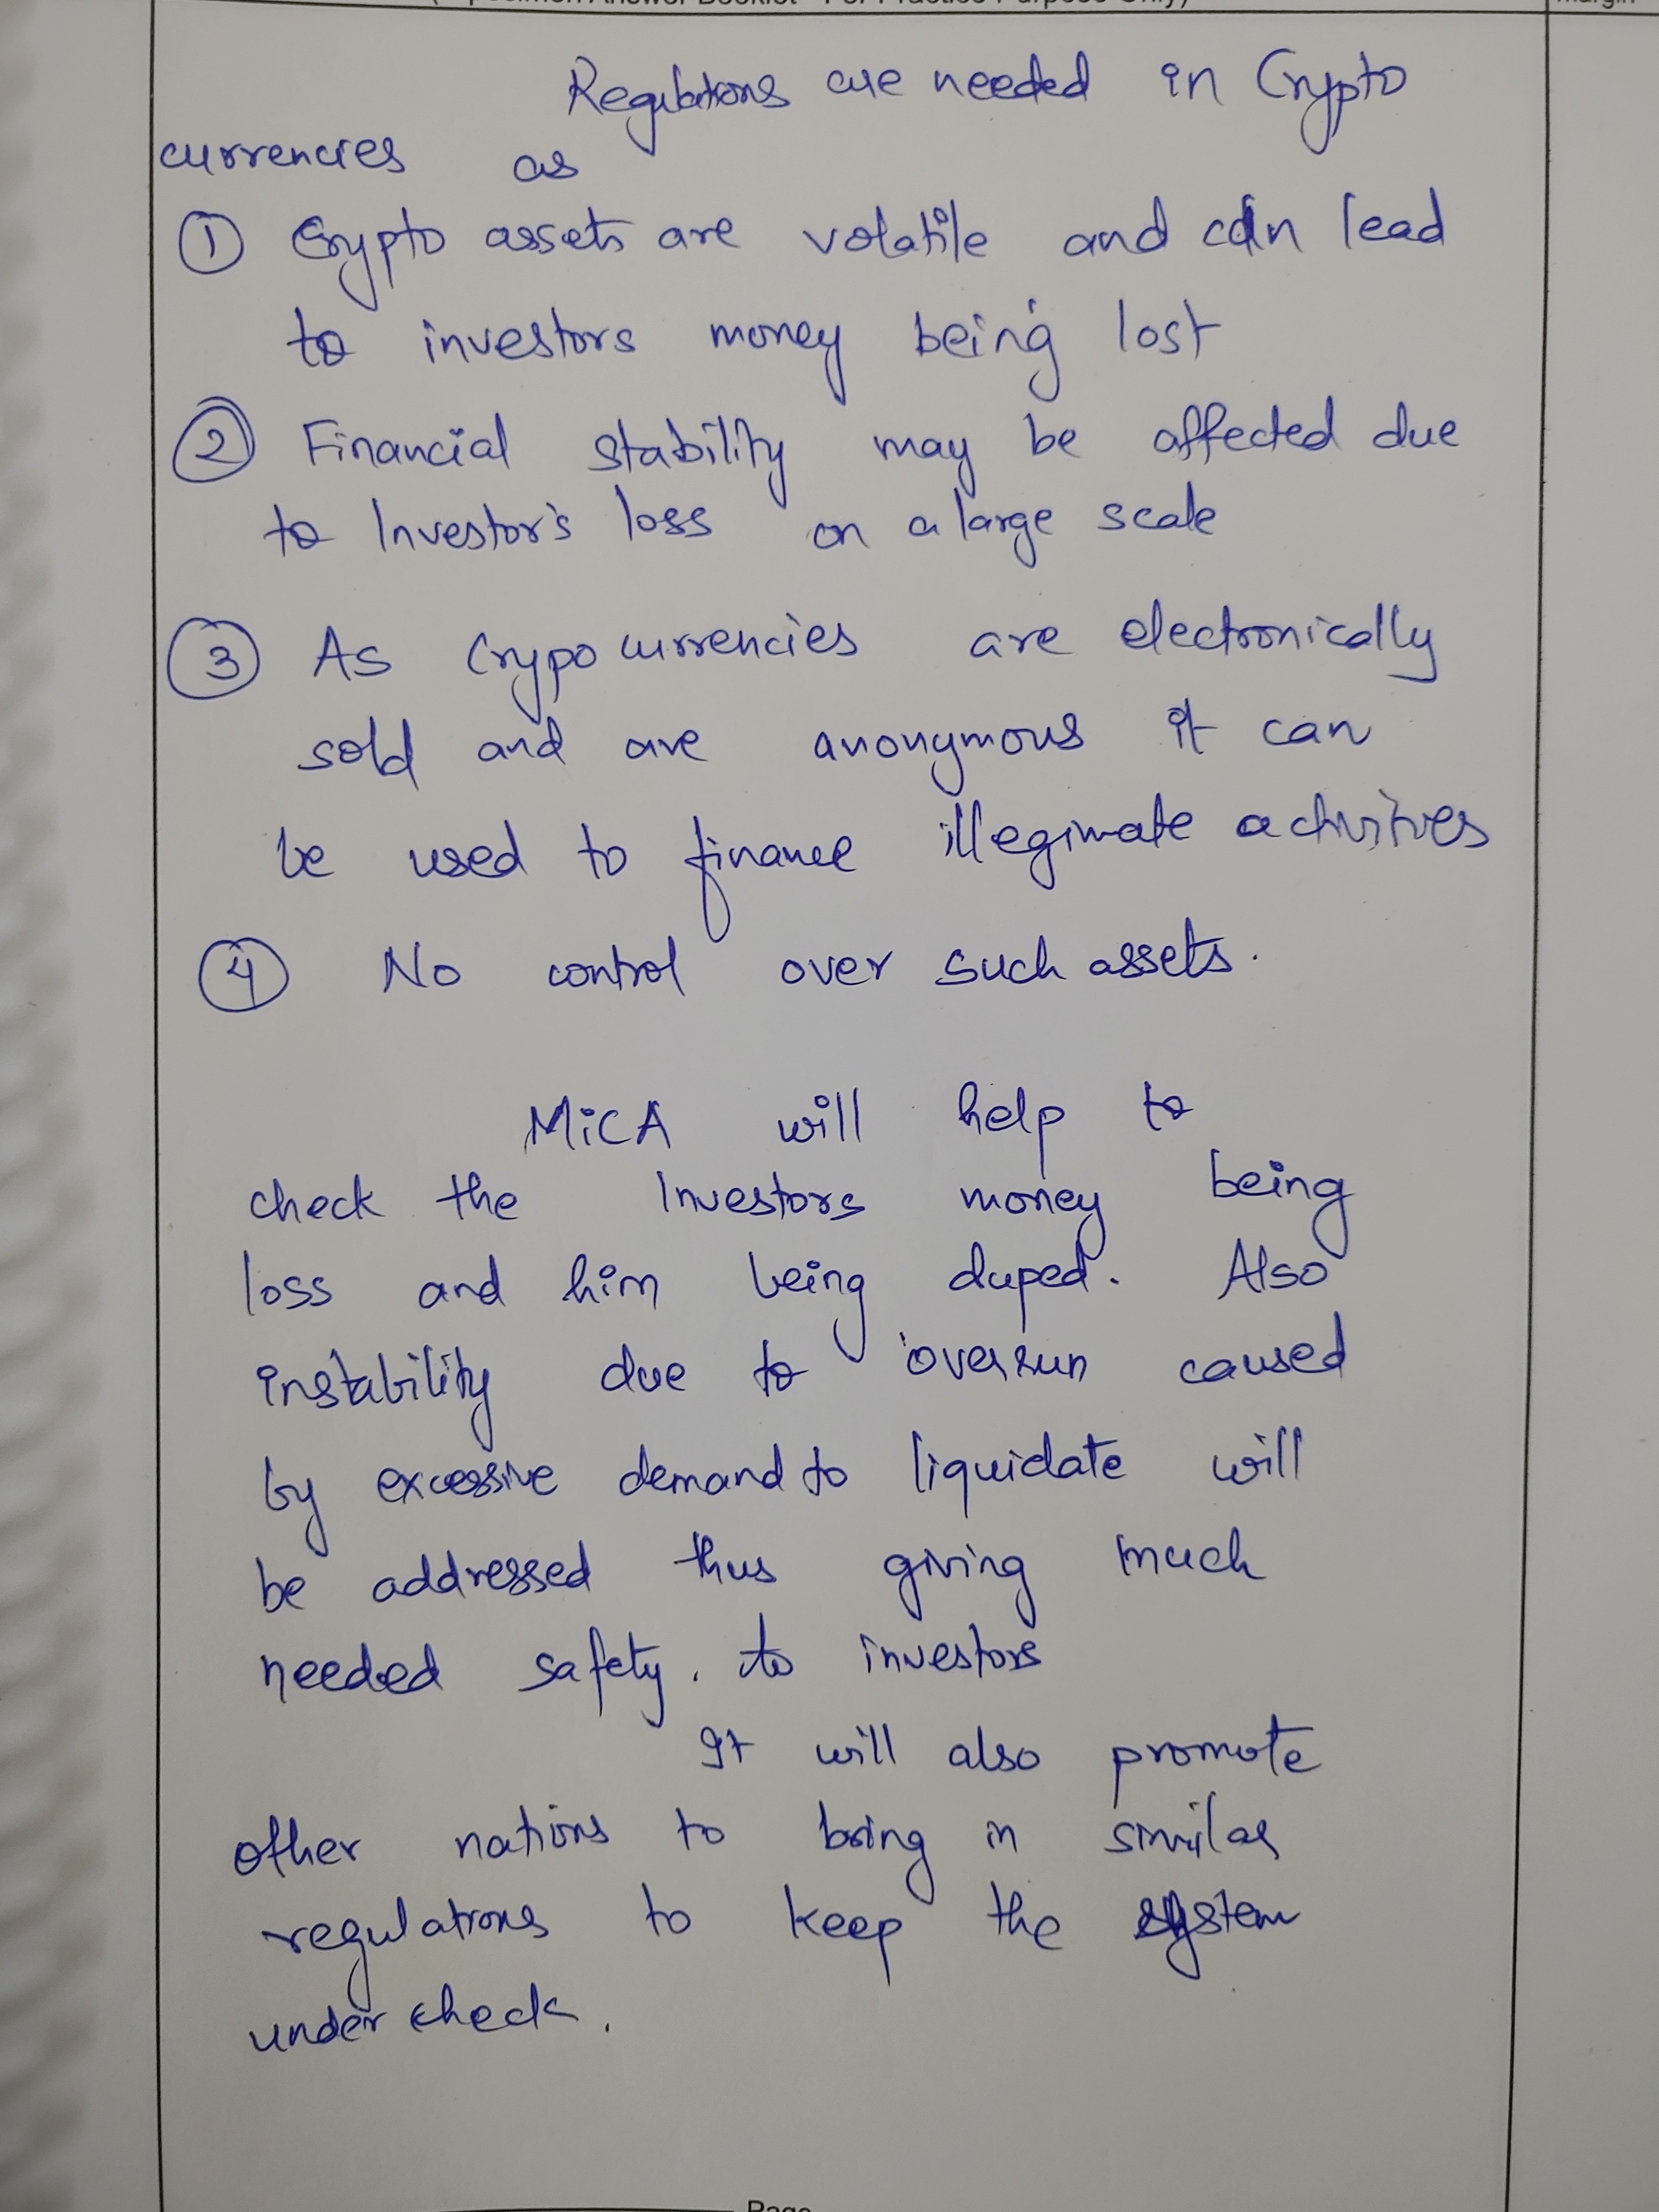 (Specimen Answer Booklet - For Practice Purpose Only)
margin
Regulations are needed in Crypto
currencies as
① Crypto assets are volatile and can lead
to investors money being lost
② Financial stability may be affected due
to Investor's loss on a large scale
③ As Crypocurrencies are electronically
sold and are anonymous it can
be used to finance illegimate activities
④ No control over such assets.
MiCA will help to
check the Investors money being
loss and him being duped. Also
instability due to overrun caused
by excessive demand to liquidate will
be addressed thus giving much
needed safety. to investors
It will also promote
other nations to bring in similar
regulations to keep the system
under check.
Page